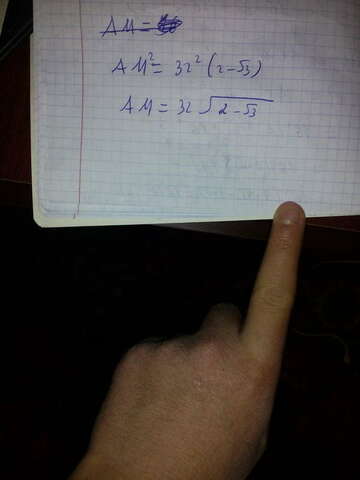 AM =
AM² = 32² (2-√3)
AM = 32 √2-√3